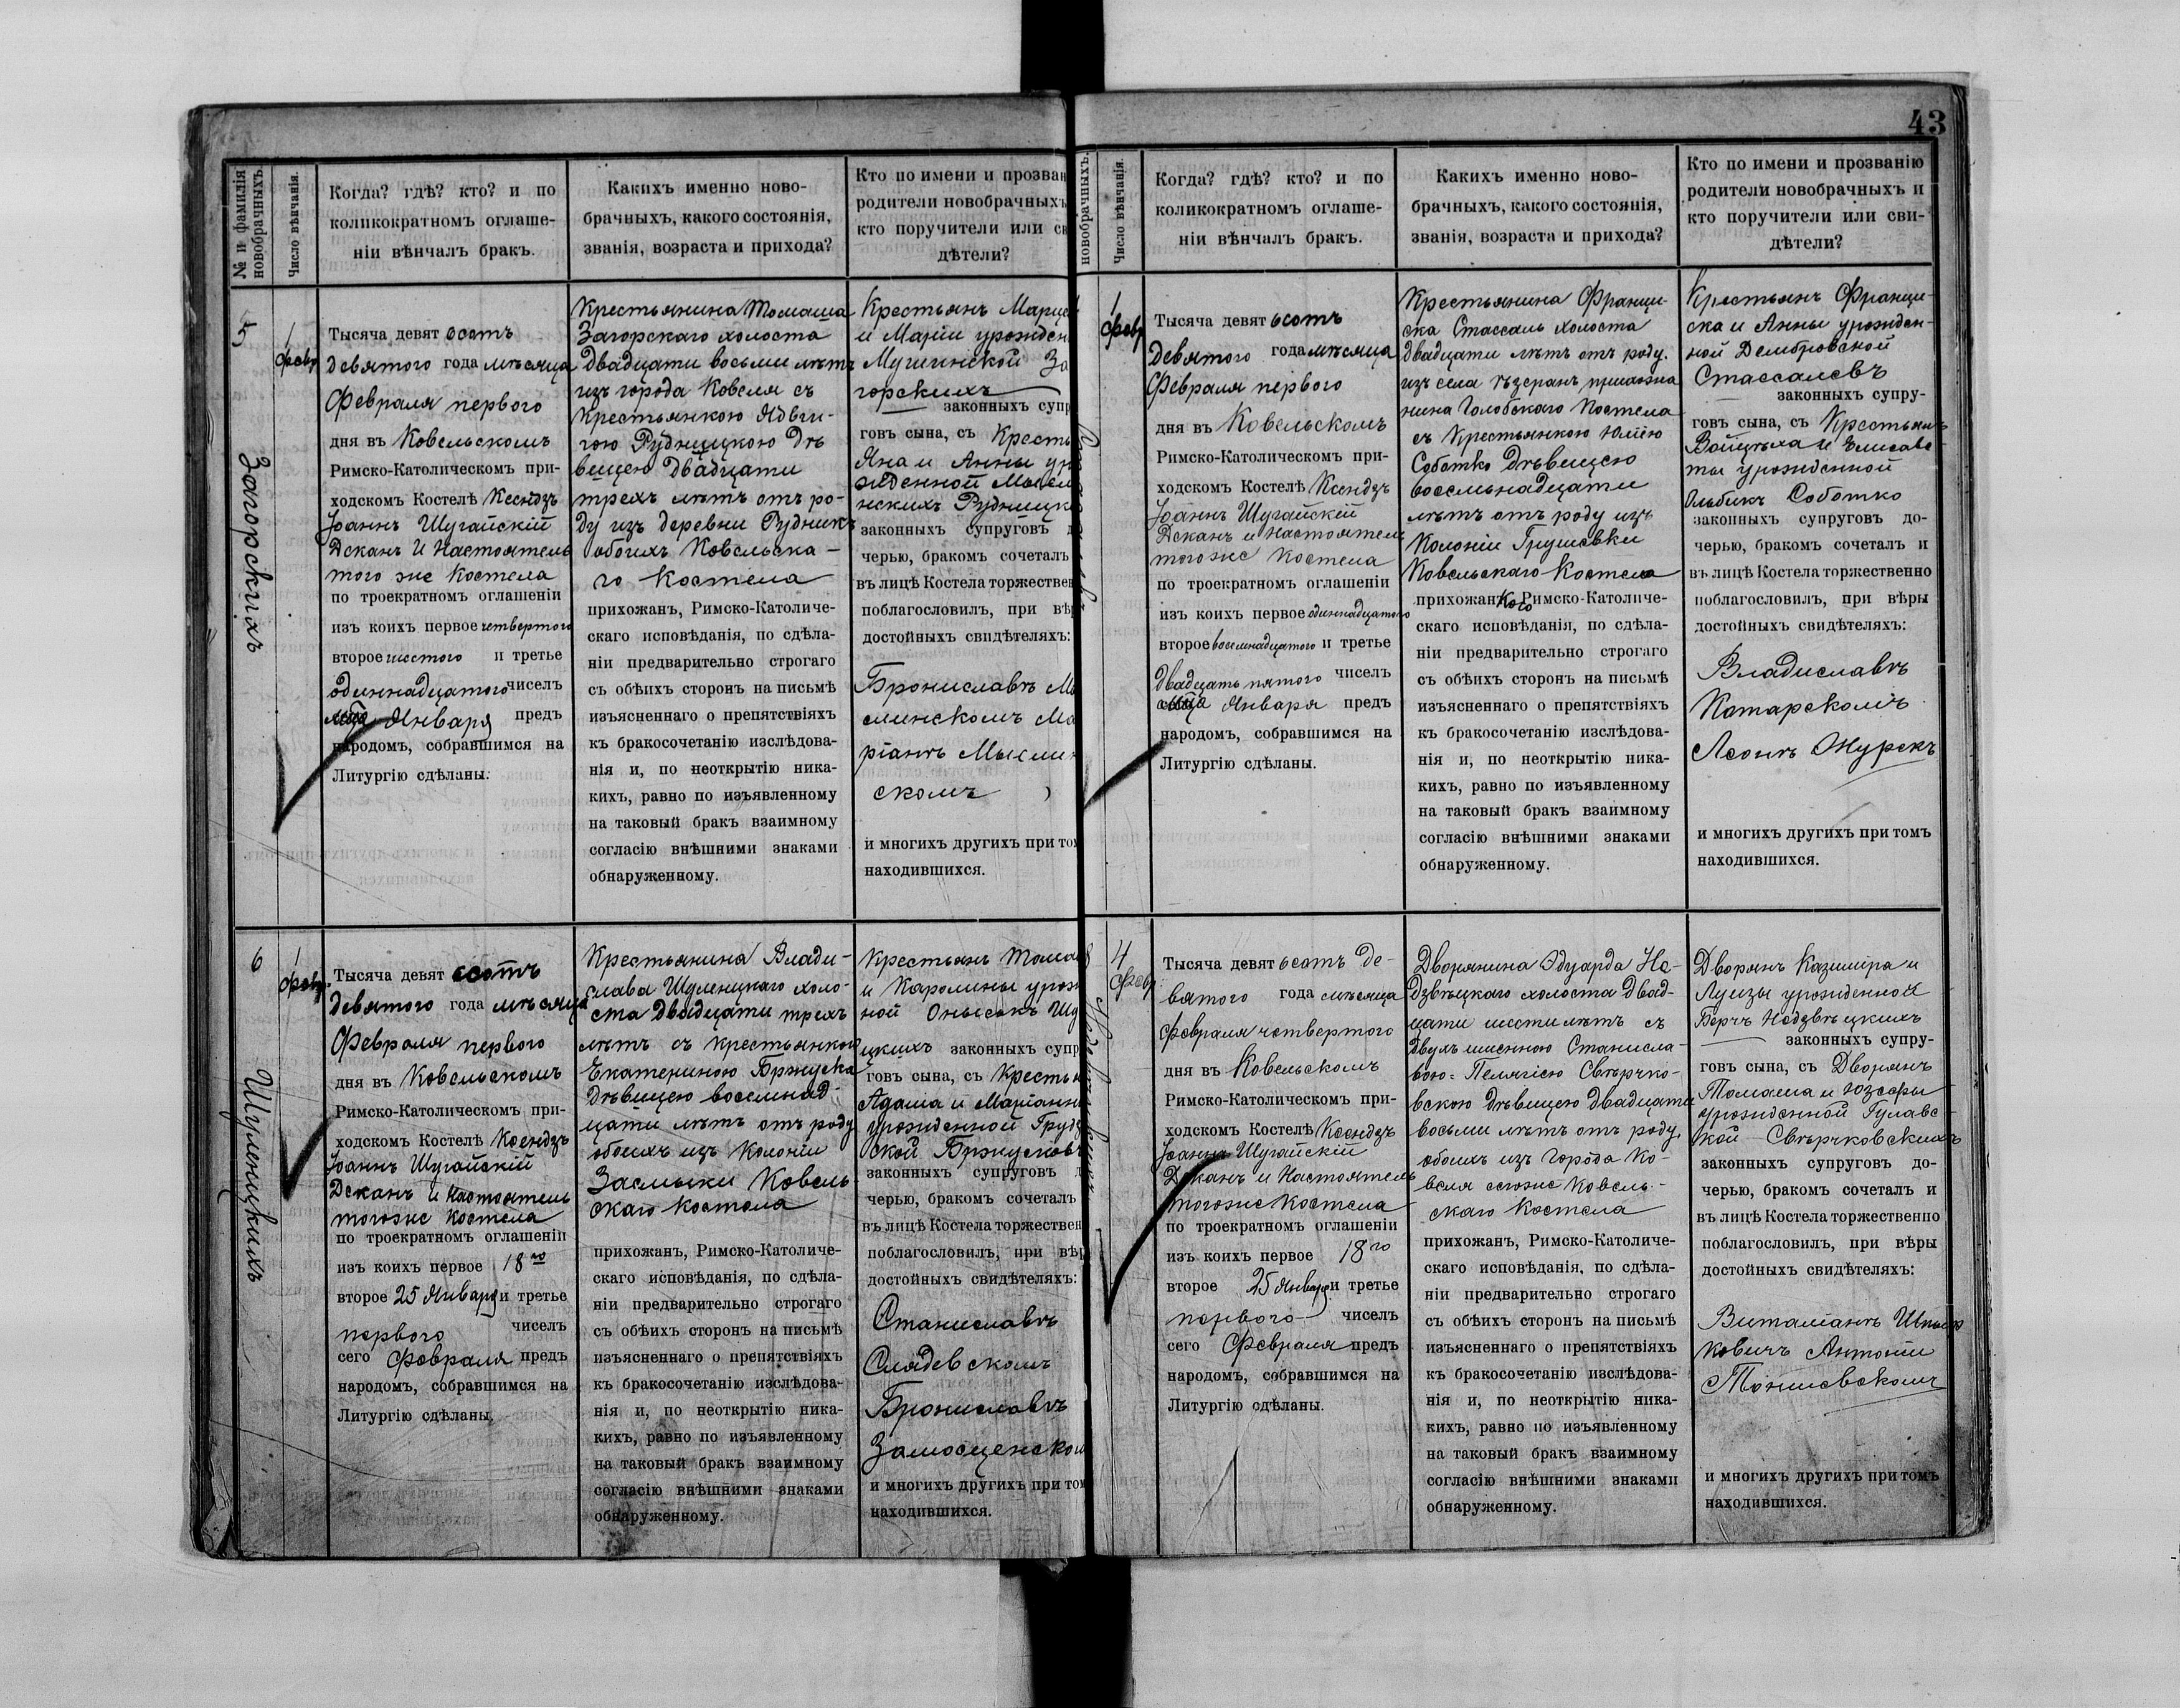 43
№ и фамилія новобрачныхъ.
Число вѣнчанія.
Когда? гдѣ? кто? и по
коликократномъ оглаше-
ніи вѣнчалъ бракъ.
Какихъ именно ново-
брачныхъ, какого состоянія,
званія, возраста и прихода?
Кто по имени и прозван
родители новобрачныхъ
кто поручители или св
дѣтели?
5
Загорскихъ
1
февр
Тысяча девят сотъ
девятого года мѣсяца
Февраля первого
дня въ Ковельскомъ
Римско-Католическом при-
ходскомъ Костелѣ Ксендзъ
Іоаннъ Шугайскій
Деканъ и Настоятель
того же Костела
по троекратном оглашеніи
изъ коихъ первое четвертого
второе шестого и третье
одиннадцатого чиселъ
Января предъ
народомъ, собравшимся на
Литургію сдѣланы.
Крестьянина Томаша
Загорскаго холоста
двадцати восьми лѣтъ
изъ города Ковеля съ
Крестьянкою Ядви-
гою Рудницкою дѣ
вицею двадцати
трехъ лѣтъ отъ ро-
ду изъ деревни Рудникъ
обоихъ Ковельска-
го Костела
прихожан, Римско-Католиче-
скаго исповѣданія, по сдѣла-
ніи предварительно строгаго
съ обѣихъ сторонъ на письмѣ
изъясненнаго о препятствіяхъ
къ бракосочетанію изслѣдова-
нія и, по неоткрытію ника-
кихъ, равно по изъявленному
на таковый бракъ взаимному
согласію внѣшними знаками
обнаруженному.
Крестьянъ Марце
и Маріи урожден
За
горскихъ
законныхъ супр
говъ сына, съ Кресть
Яна и Анны ур
жденной
нскихъ Рудницк
законныхъ супруговъ д
черью, бракомъ сочеталъ
въ лицѣ Костела торжествен
поблагословилъ, при вѣр
достойныхъ свидѣтеляхъ:
Брониславъ М
слинскомъ Ма
ріанъ Мысли
скомъ
и многихъ другихъ при том
находившихся.
6
Шуленицкихъ
1
февр.
Тысяча девят сотъ
девятого года мѣсяца
Февраля первого
дня въ Ковельскомъ
Римско-Католическом при-
ходскомъ Костелѣ Ксендзъ
Іоаннъ Шугайскій
Деканъ и Настоятель
тогоже Костела
по троекратном оглашеніи
изъ коихъ первое 18го
второе 25 Января и третье
первого чиселъ
сего Февраля предъ
народомъ, собравшимся на
Литургію сдѣланы.
Крестьянина Влади-
слава Шуленицкаго холо-
ста двадцати трехъ
лѣтъ съ крестьянкою
Екатериною Бржуска
дѣвицею восемнад-
цати лѣтъ отъ роду
обоихъ изъ Колоніи
Засмыки Ковель-
скаго Костела
прихожан, Римско-Католиче-
скаго исповѣданія, по сдѣла-
ніи предварительно строгаго
съ обѣихъ сторонъ на письмѣ
изъясненнаго о препятствіяхъ
къ бракосочетанію изслѣдова-
нія и, по неоткрытію ника-
кихъ, равно по изъявленному
на таковый бракъ взаимному
согласію внѣшними знаками
обнаруженному.
Крестьянъ Тома
и Каролины урож
ной Шу
ицкихъ законныхъ супр
говъ сына, съ Крестья
Адама и Маріанны
урожденной Груд
ской
законныхъ супруговъ д
черью, бракомъ сочеталъ
въ лицѣ Костела торжествен
поблагословилъ, при вѣр
достойныхъ свидѣтеляхъ:
Станиславъ
Слядевскомъ
Брониславъ
Замосценском
и многихъ другихъ при том
находившихся.
новобрачныхъ.
Число вѣнчанія.
Когда? гдѣ? кто? и по
коликократномъ оглаше-
ніи вѣнчалъ бракъ.
Какихъ именно ново-
брачныхъ, какого состоянія,
званія, возраста и прихода?
Кто по имени и прозванію
родители новобрачныхъ и
кто поручители или сви-
дѣтели?
1
февр
Тысяча девят сотъ
девятого года мѣсяца
Февраля первого
дня въ Ковельскомъ
Римско-Католическом при-
ходскомъ Костелѣ Ксендзъ
Іоаннъ Шугайскій
Деканъ и Настоятель
тогоже Костела
по троекратном оглашеніи
изъ коихъ первое одиннадцатого
второе восемнадцатого и третье
двадцать пятого чиселъ
Января предъ
народомъ, собравшимся на
Литургію сдѣланы.
Крестьянина Франци-
ска Стассаль холоста
двадцати лѣтъ отъ роду.
изъ села прихожа
нина Голобскаго Костела
съ Крестьянкою Юліею
Соботко дѣвицею
восемьнадцати
лѣтъ отъ роду изъ
Колоніи Грушевки
Ковельскаго Костела
прихожанкою Римско-Католиче-
скаго исповѣданія, по сдѣла-
ніи предварительно строгаго
съ обѣихъ сторонъ на письмѣ
изъясненнаго о препятствіяхъ
къ бракосочетанію изслѣдова-
нія и, по неоткрытію ника-
кихъ, равно по изъявленному
на таковый бракъ взаимному
согласію внѣшними знаками
обнаруженному.
Крестьянъ Франци-
ска и Анны урожден-
ной Домбровской
Стассалевъ
законныхъ супру-
говъ сына, съ Крестьянъ
Войцѣха и Елисаве
ты урожденной
Ольбикъ Соботко
законныхъ супруговъ до-
черью, бракомъ сочеталъ и
въ лицѣ Костела торжественно
поблагословилъ, при вѣры
достойныхъ свидѣтеляхъ:
Владиславъ
Катарскомъ
Леонъ Ожурекъ
и многихъ другихъ при томъ
находившихся.
8
4
февр.
Тысяча девят сотъ де-
вятого года мѣсяца
февраля четвертого
дня въ Ковельскомъ
Римско-Католическом при-
ходскомъ Костелѣ Ксендзъ
Іоаннъ Шугайскій
Деканъ и Настоятель
тогоже Костела
по троекратном оглашеніи
изъ коихъ первое 18го
второе 25 Января и третье
первого чиселъ
сего Февраля предъ
народомъ, собравшимся на
Литургію сдѣланы.
Дворянина Эдуарда Не-
дзвѣцкаго холоста двад-
цати шести лѣтъ съ
двухъименною Станисла-
вою-Пелагіею Свѣрчко-
вскою дѣвицею двадцати
восьми лѣтъ отъ роду,
обоихъ изъ города Ко-
веля сегоже Ковель-
скаго Костела
прихожан, Римско-Католиче-
скаго исповѣданія, по сдѣла-
ніи предварительно строгаго
съ обѣихъ сторонъ на письмѣ
изъясненнаго о препятствіяхъ
къ бракосочетанію изслѣдова-
нія и, по неоткрытію ника-
кихъ, равно по изъявленному
на таковый бракъ взаимному
согласію внѣшними знаками
обнаруженному.
Дворянъ Казиміра и
Луизы урожденной
Берчъ Недзвѣцкихъ
законныхъ супру-
говъ сына, съ Дворянъ
Томаша и Юзефы
урожденной Гулавс-
кой Свѣрчковскихъ
законныхъ супруговъ до-
черью, бракомъ сочеталъ и
въ лицѣ Костела торжественно
поблагословилъ, при вѣры
достойныхъ свидѣтеляхъ:
Виталіанъ
ковичъ Антоній
Тониевскомъ
и многихъ другихъ при томъ
находившихся.